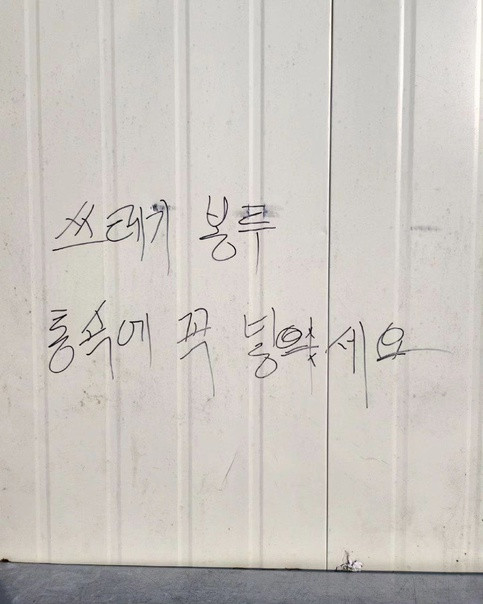 쓰테기 봉투
통속에 꼭 넣으세요